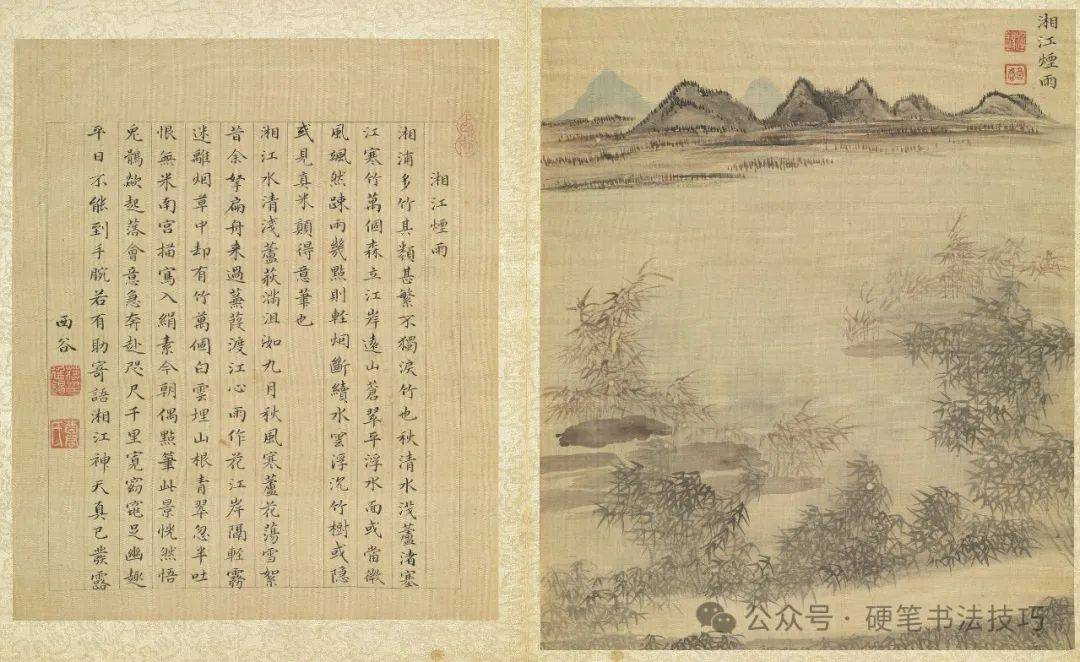 湘江煙雨
湘江煙雨
湘浦多竹其類甚繁不獨淚竹也秋清水淺蘆渚塞
江寒竹萬個森立江岸遠山蒼翠平浮水面或當微
風颯然踈雨幾點則輕烟斷續水雲浮沉竹樹或隱
或見真米顛得意筆也
湘江水清淺蘆荻滿沮洳九月秋風寒蘆花蕩雪絮
昔余拏扁舟来過蒹葭渡江心雨作花江岸隔輕霧
迷離烟草中却有竹萬個白雲埋山根青翠忽半吐
恨無米南宫描寫入絹素今朝偶點筆此景恍然悟
兔鶻欻起落會意急奔赴咫尺千里寬窈窕足幽趣
平日不能到手腕若有助寄語湘江神天真已發露
西谷
公众号·硬笔书法技巧